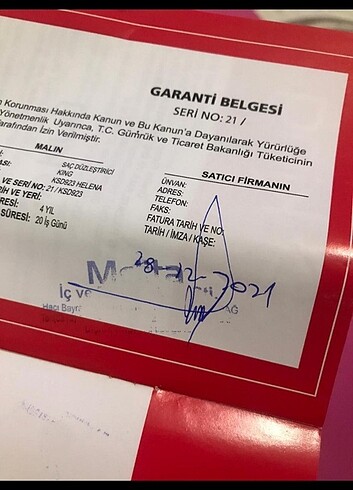 GARANTİ BELGESİ
SERİ NO: 21 /
Korunması Hakkında Kanun ve Bu Kanun'a Dayanılarak Yürürlüğe
Yönetmelik Uyarınca, T.C. Gümrük ve Ticaret Bakanlığı Tüketicinin
arafından İzin Verilmiştir.
MALIN
SAÇ DÜZLEŞTİRİCİ
ASI: KING
KSD923 HELENA
VE SERİ NO: 21 / KSD923
RİH VE YERİ:
RESİ: 4 YIL
SÜRESİ: 20 İş Günü
SATICI FİRMANIN
ÜNVAN:
ADRES:
TELEFON:
FAKS:
FATURA TARİH VE NO:
TARİH / İMZA / KAŞE:
28-12-2021
İç ve
Hacı Bayra